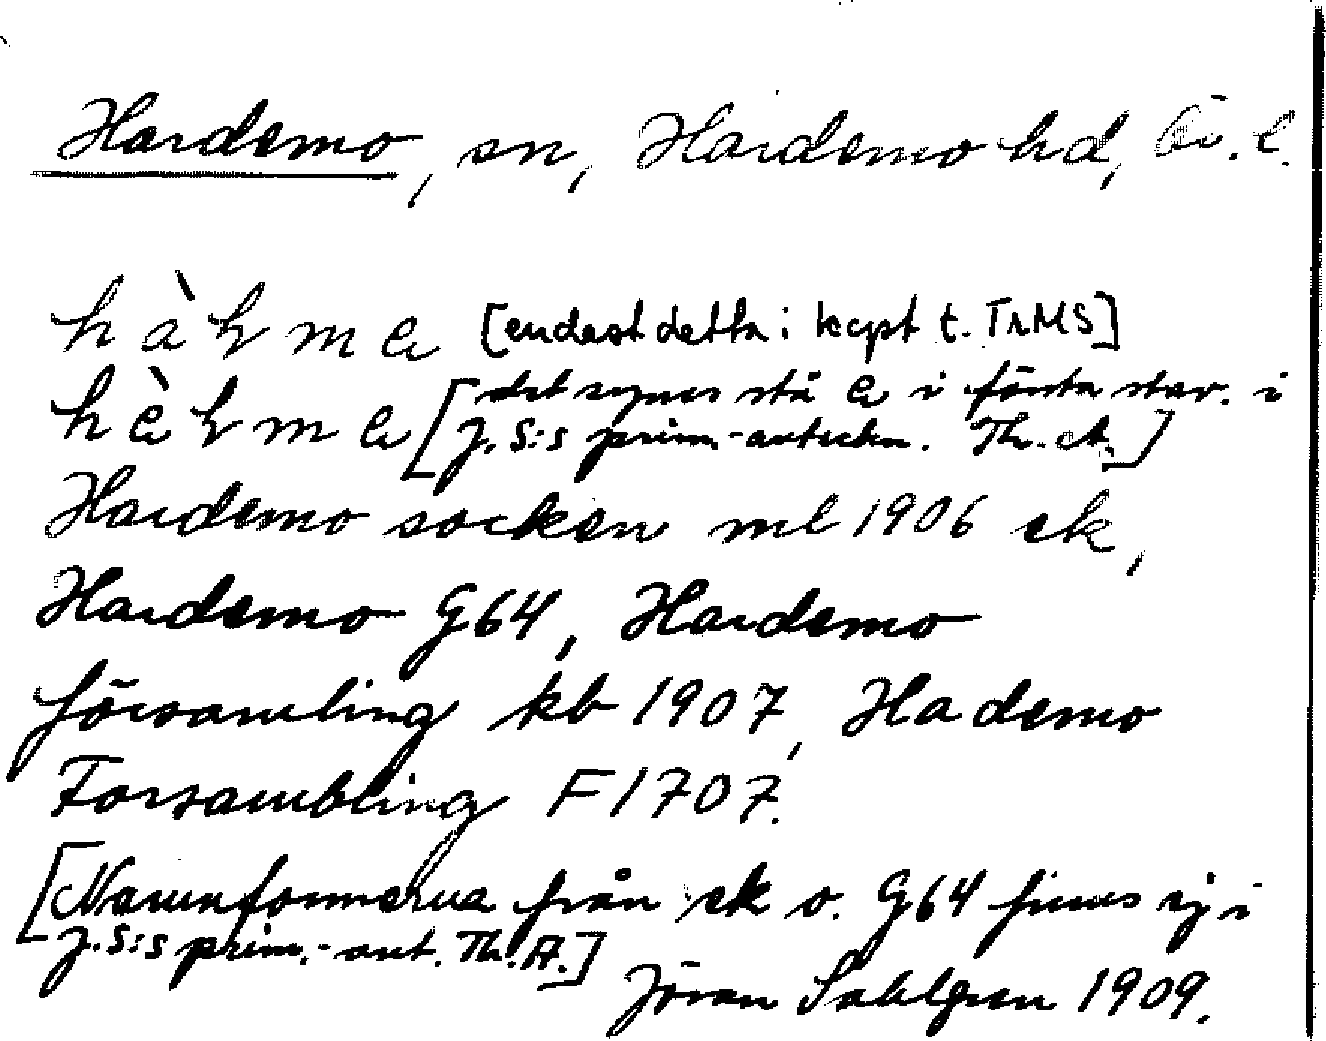 Hardemo, sn, Hardemo hd, Ör. l.
hàrma [endast detta i kopt t. TrMS]
hàrma [det synes stå a i första stav. i
J. S:s prim.-anteckn. Th. A.]
Hardemo socken ml 1906 ek,
Hardemo G64, Hardemo
församling kb 1907, Hademo
Forsambling F 1707.
[Namnformerna från ek o. G64 finns ej i
J. S:s prim.-ant. Th. A.]
Jöran Sahlgren 1909.